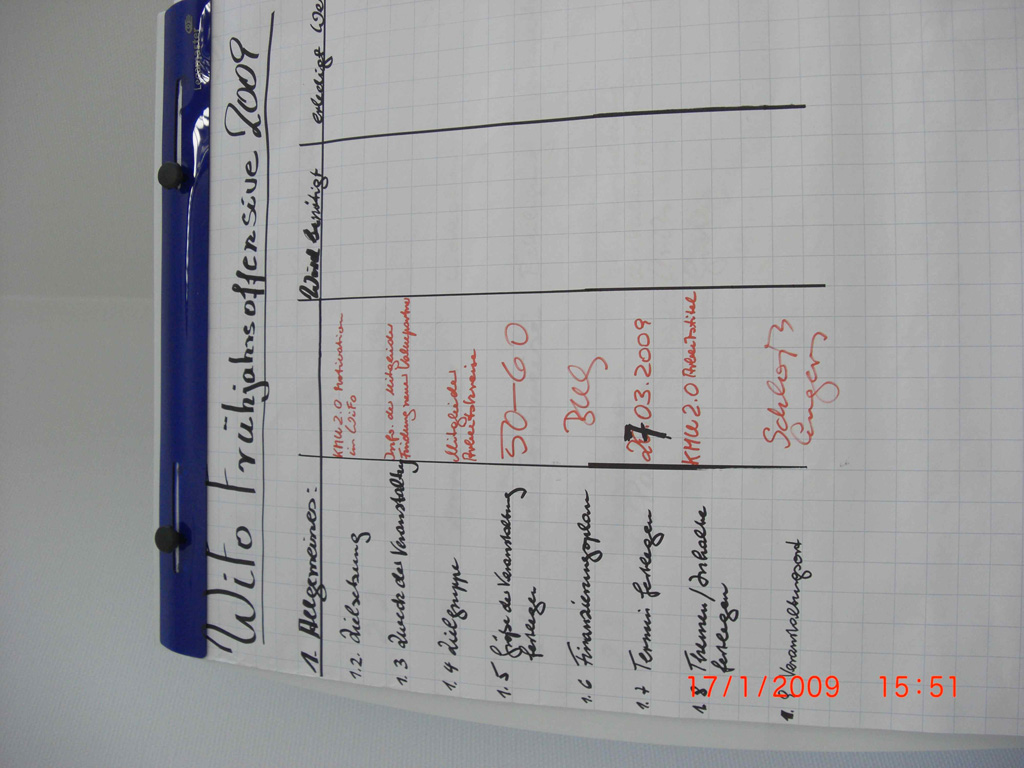 WiFo Frühjahrsoffensive 2009
1. Allgemeines: Wird benötigt erledigt We
1.2. Zielsetzung KMU 2.0 Motivation
in WiFo
1.3 Zweck der Veranstaltung Info. der Mitglieder
Findung neuer
1.4 Zielgruppe Mitglieder
Arbeitskreis
1.5 Größe der Veranstaltung 50-60
festlegen
1.6 Finanzierungsplan
1.7 Termin festlegen 27.03.2009
1.8 Themen/Inhalte KMU 2.0
festlegen
1.9 Veranstaltungsort
17/1/2009 15:51